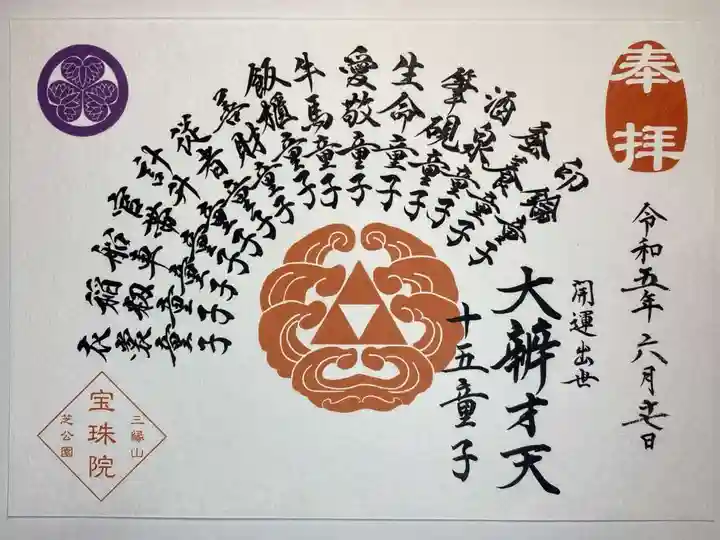 奉拝
令和五年六月十七日
開運出世
大辨才天
十五童子
印鑰童子
蚕養童子
酒泉童子
筆硯童子
生命童子
愛敬童子
牛馬童子
飯櫃童子
善財童子
従者童子
計升童子
官帯童子
船車童子
稲籾童子
衣裳童子
三縁山
宝珠院
芝公園